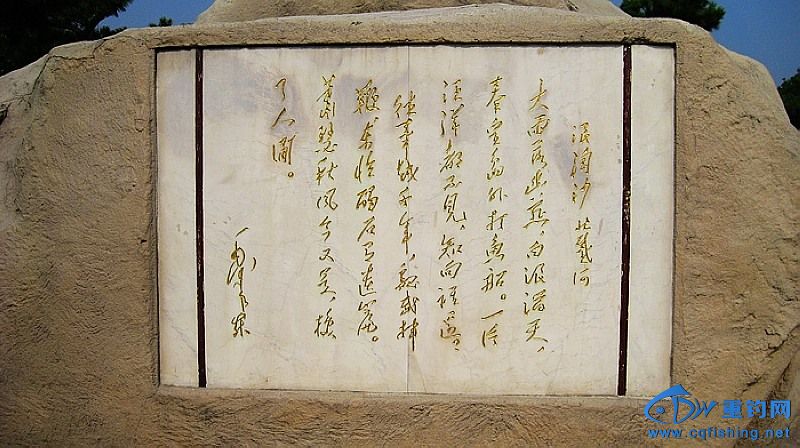 浪淘沙 北戴河
大雨落幽燕，白浪滔天，
秦皇島外打魚船。一片
汪洋都不見，知向誰邊？
往事越千年，魏武揮
鞭東臨碣石有遺篇。
蕭瑟秋風今又是，換
了人間。
毛澤東
重钓网
www.cqfishing.net